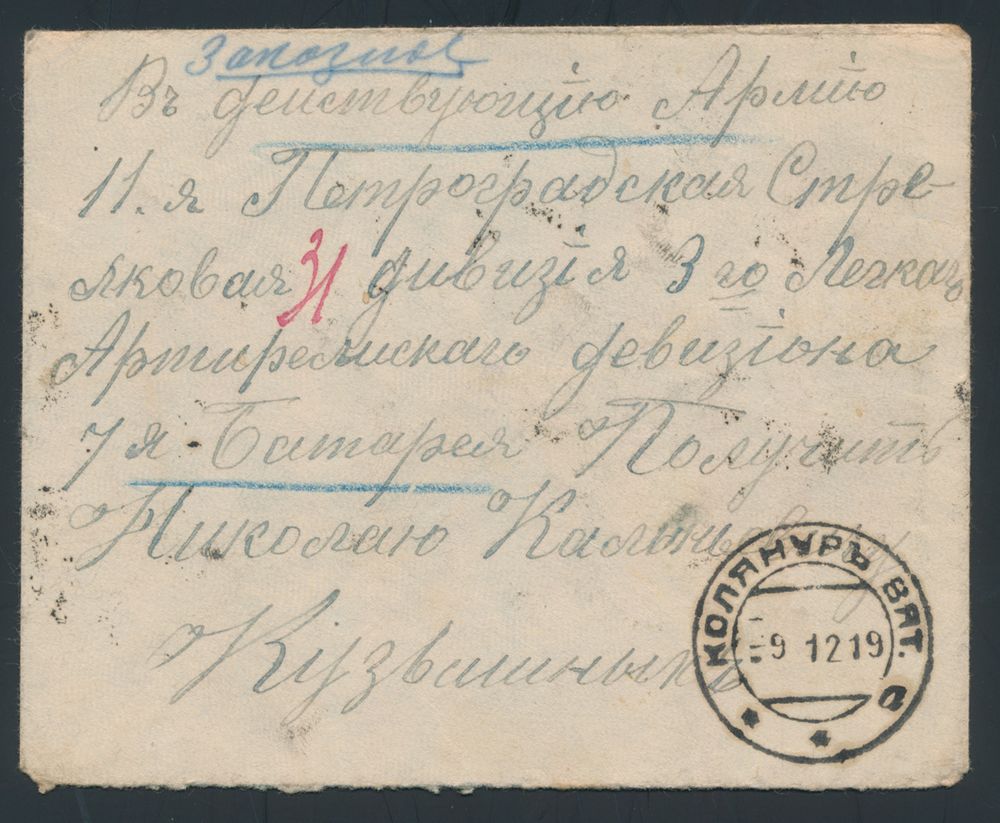 Заказное
Въ действующію Армію
11.я Петроградская Стре-
лковая 31 дивизія 3 го Легкаго
Артирелискаго девизіона
7 я Батарея Получить
Николаю
КОЛЯНУРЪ ВЯТ.
-9 12 19
а